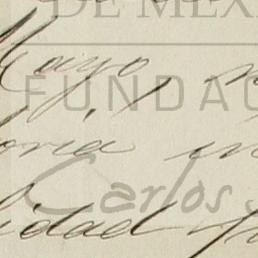 DE MEX
Mayo,
FUNDAC
oria
Carlos S
lidad